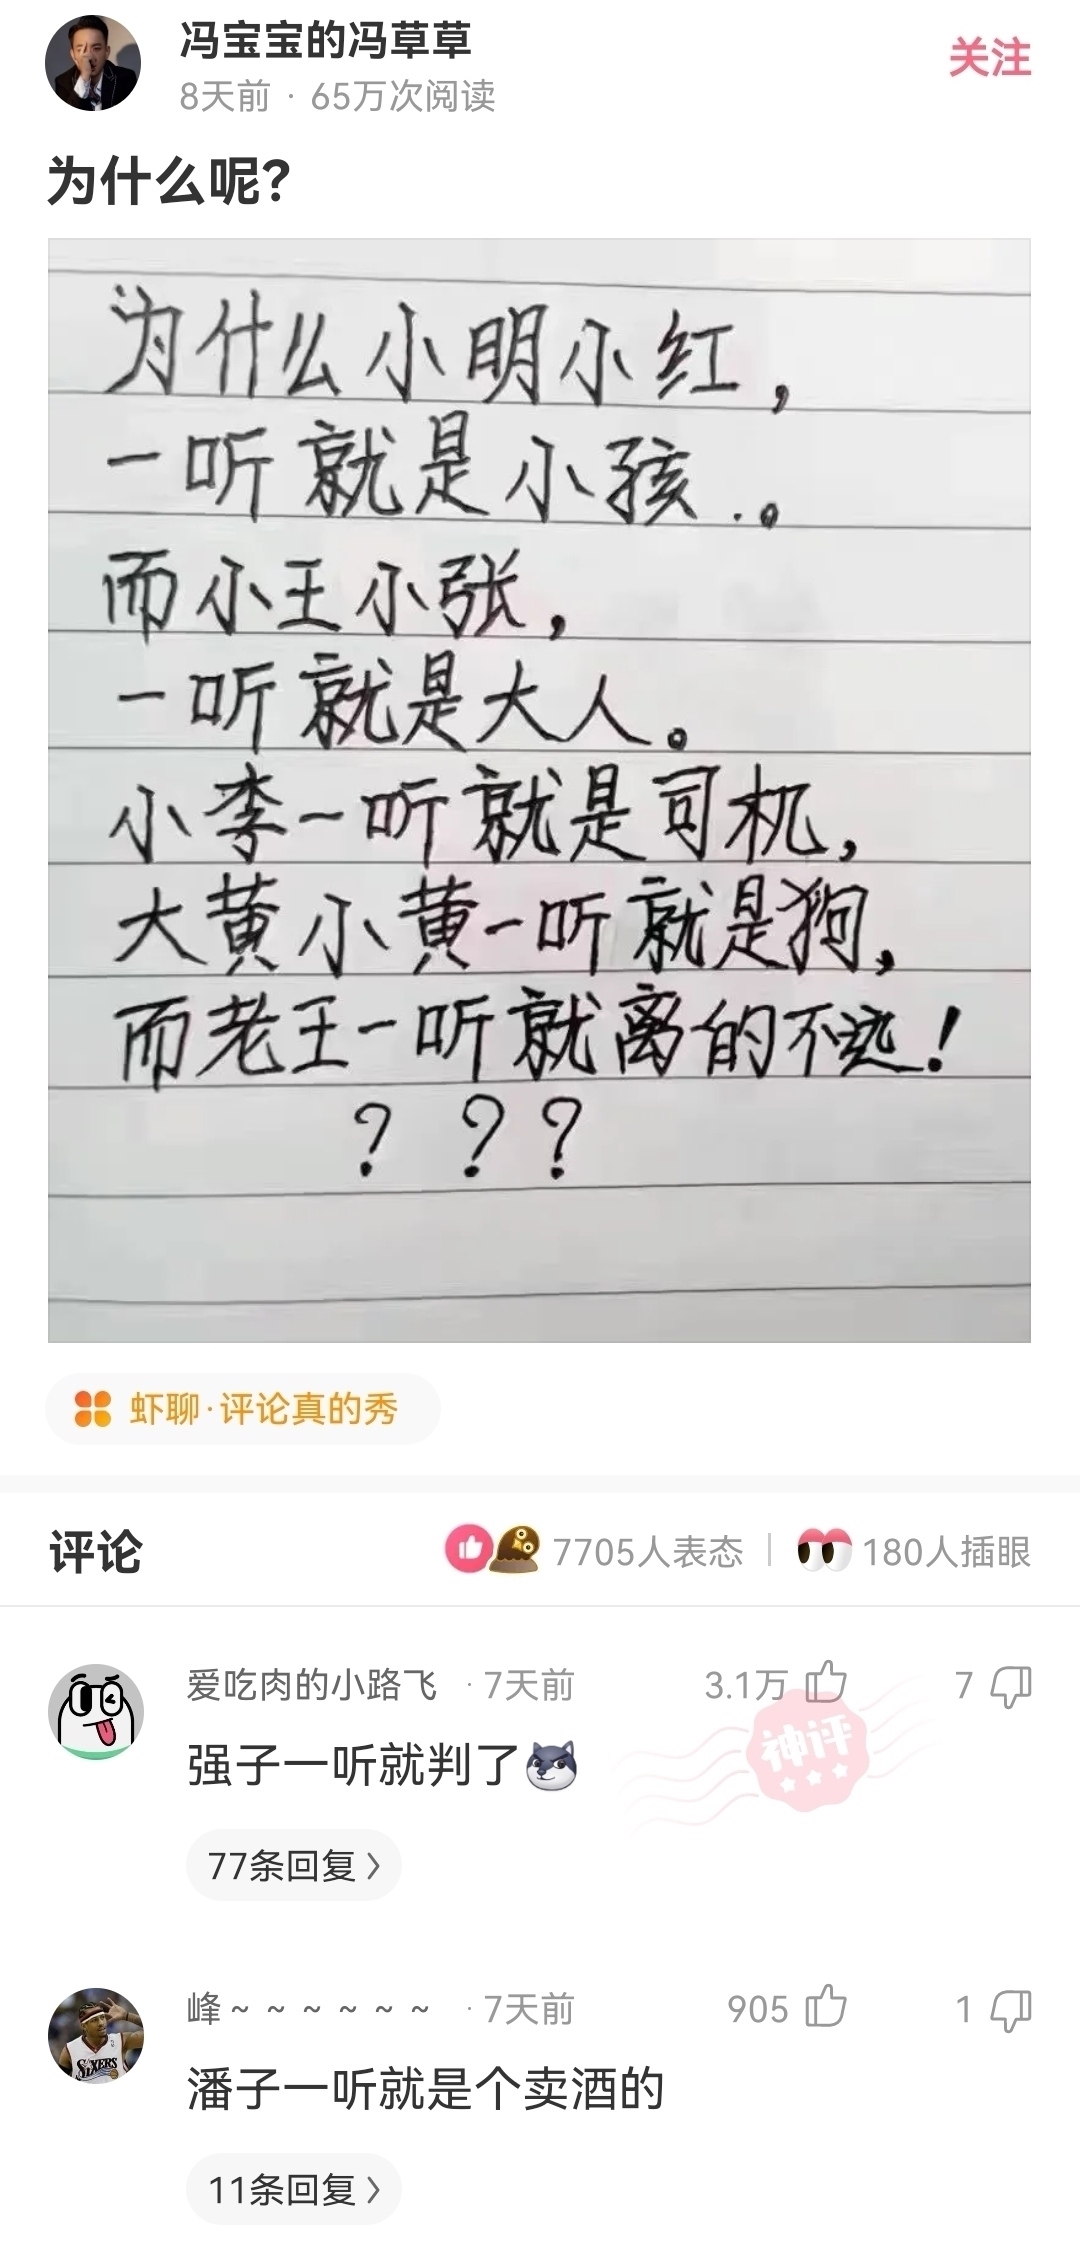 冯宝宝的冯草草
关注
8天前 · 65万次阅读
为什么呢？
为什么小明小红，
一听就是小孩.。
而小王小张，
一听就是大人。
小李一听就是司机，
大黄小黄一听就是狗，
而老王一听就离的不远！
？？？
虾聊·评论真的秀
评论
7705人表态 | 180人插眼
爱吃肉的小路飞 · 7天前 3.1万 7
神评
强子一听就判了
77条回复 >
峰~~~~~~ · 7天前 905 1
SIXERS
潘子一听就是个卖酒的
11条回复 >